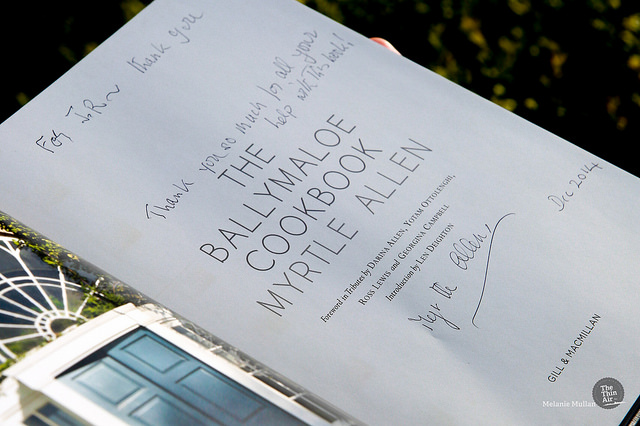 Thank you
Thank you so much for all your
help with this book!
THE
BALLYMALOE
COOKBOOK
MYRTLE ALLEN
Foreword in Tributes by DARINA ALLEN, YOTAM OTTOLENGHI,
ROSS LEWIS and GEORGINA CAMPBELL
Introduction by LEN DEIGHTON
Myrtle Allen
Dec 2014
GILL & MACMILLAN
Melanie Mullan
The
Thin
Air